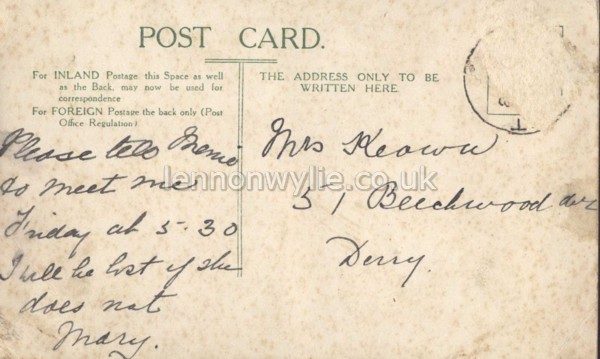 POST CARD.
For INLAND Postage, this Space as well
as the Back, may now be used for
correspondence
For FOREIGN Postage the back only (Post
Office Regulation)
THE ADDRESS ONLY TO BE
WRITTEN HERE
Please tell
to meet me
Friday at 5.30
I will be lost if she
does not
Mary.
Mrs Keown
51 Beechwood
Derry.
lennonwylie.co.uk